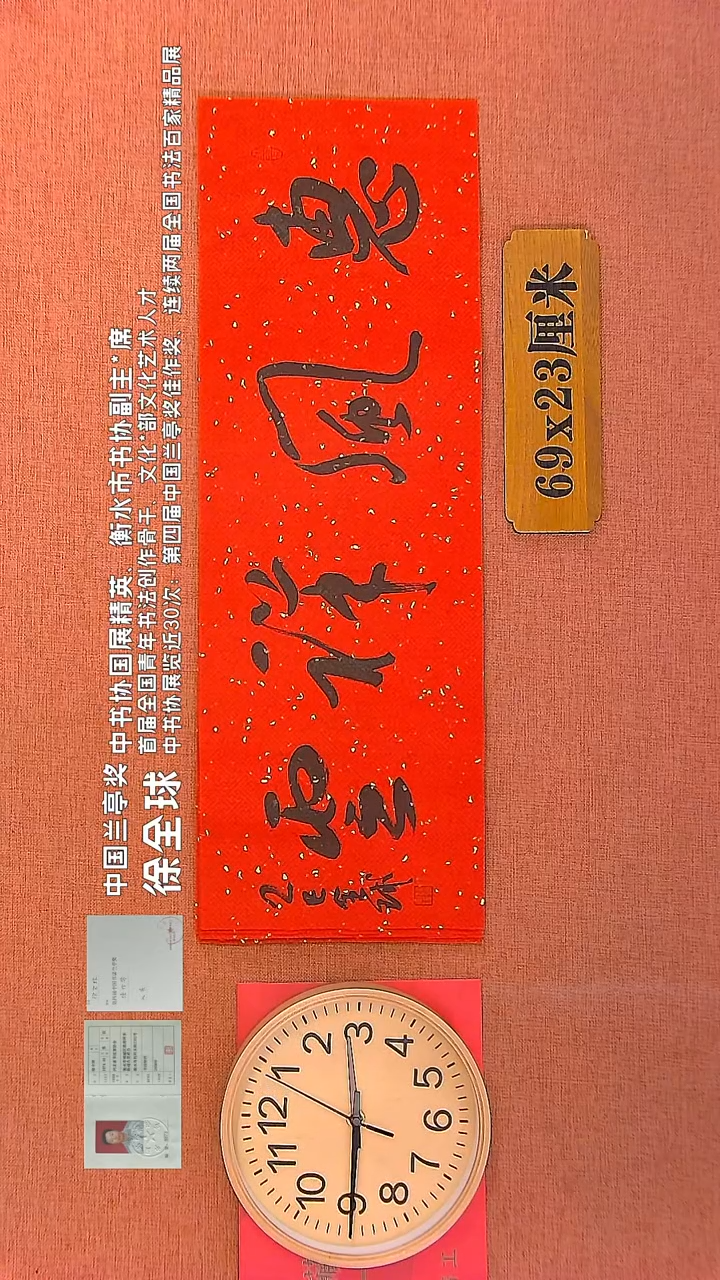 中国兰亭奖 中书协国展精英、衡水市书协副主*席
徐全球
首届全国青年书法创作骨干、文化*部文化艺术人才
中书协展览近30次：第四届中国兰亭奖佳作奖、连续两届全国书法百家精品展
惠風祥雲
乙巳全球
69x23厘米
12
1
2
3
4
5
6
7
8
9
10
11